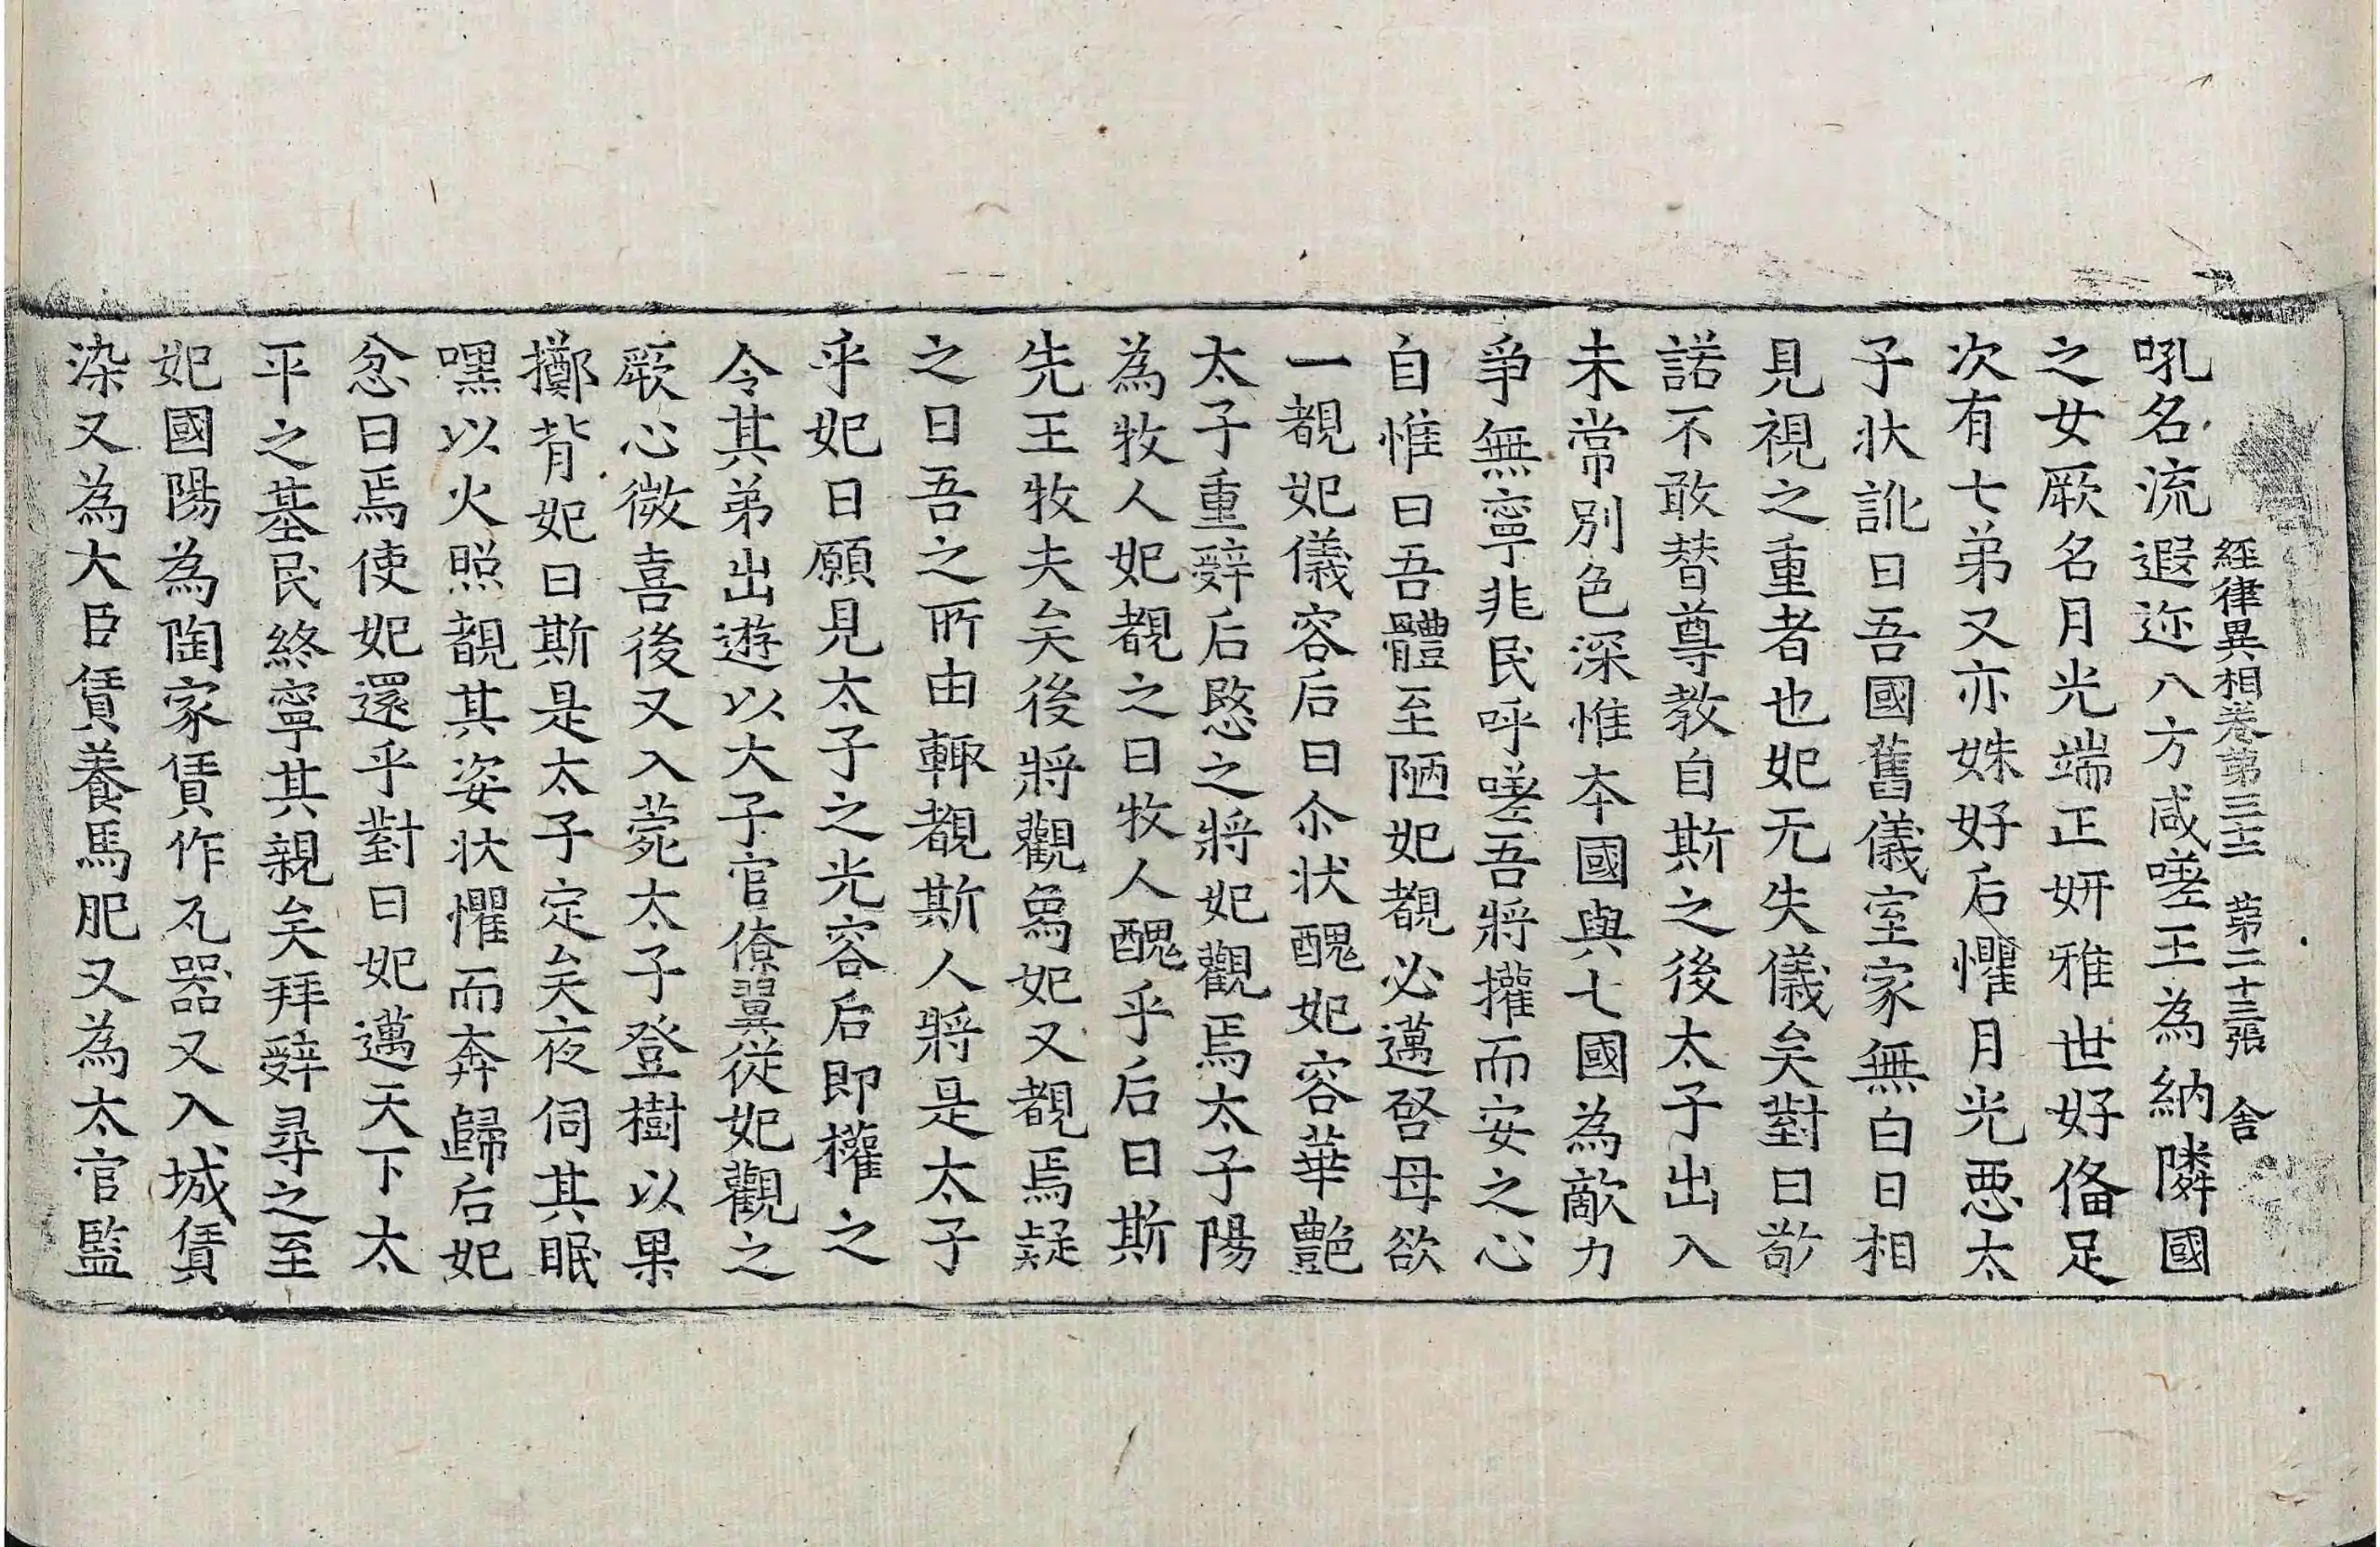 經律異相卷第三十二 第二十三張 舍
吼名流遐迩八方咸嗟王為納隣國
之女厥名月光端正妍雅世好俻足
次有七弟又亦姝好后懼月光惡太
子状訛曰吾國舊儀室家無白日相
見視之重者也妃无失儀矣對曰敬
諾不敢替尊教自斯之後太子出入
未常別色深惟本國與七國為敵力
爭無寧兆民呼嗟吾將權而安之心
自惟曰吾體至陋妃覩必邁啓母欲
一覩妃儀容后曰尒状醜妃容華艶
太子重辝后愍之將妃觀焉太子陽
為牧人妃覩之曰牧人醜乎后曰斯
先王牧夫矣後將觀爲妃又覩焉疑
之曰吾之所由輙覩斯人將是太子
乎妃曰願見太子之光容后即權之
令其弟出遊以大子官僚翼從妃觀之
厥心微喜後又入菀太子登樹以果
擲背妃曰斯是太子定矣夜伺其眠
嘿以火照覩其姿状懼而奔歸后妃
忿曰焉使妃還乎對曰妃邁天下太
平之基民終寧其親矣拜辝尋之至
妃國陽為陶家賃作瓦器又入城賃
染又為大臣賃養馬肥又為太官監